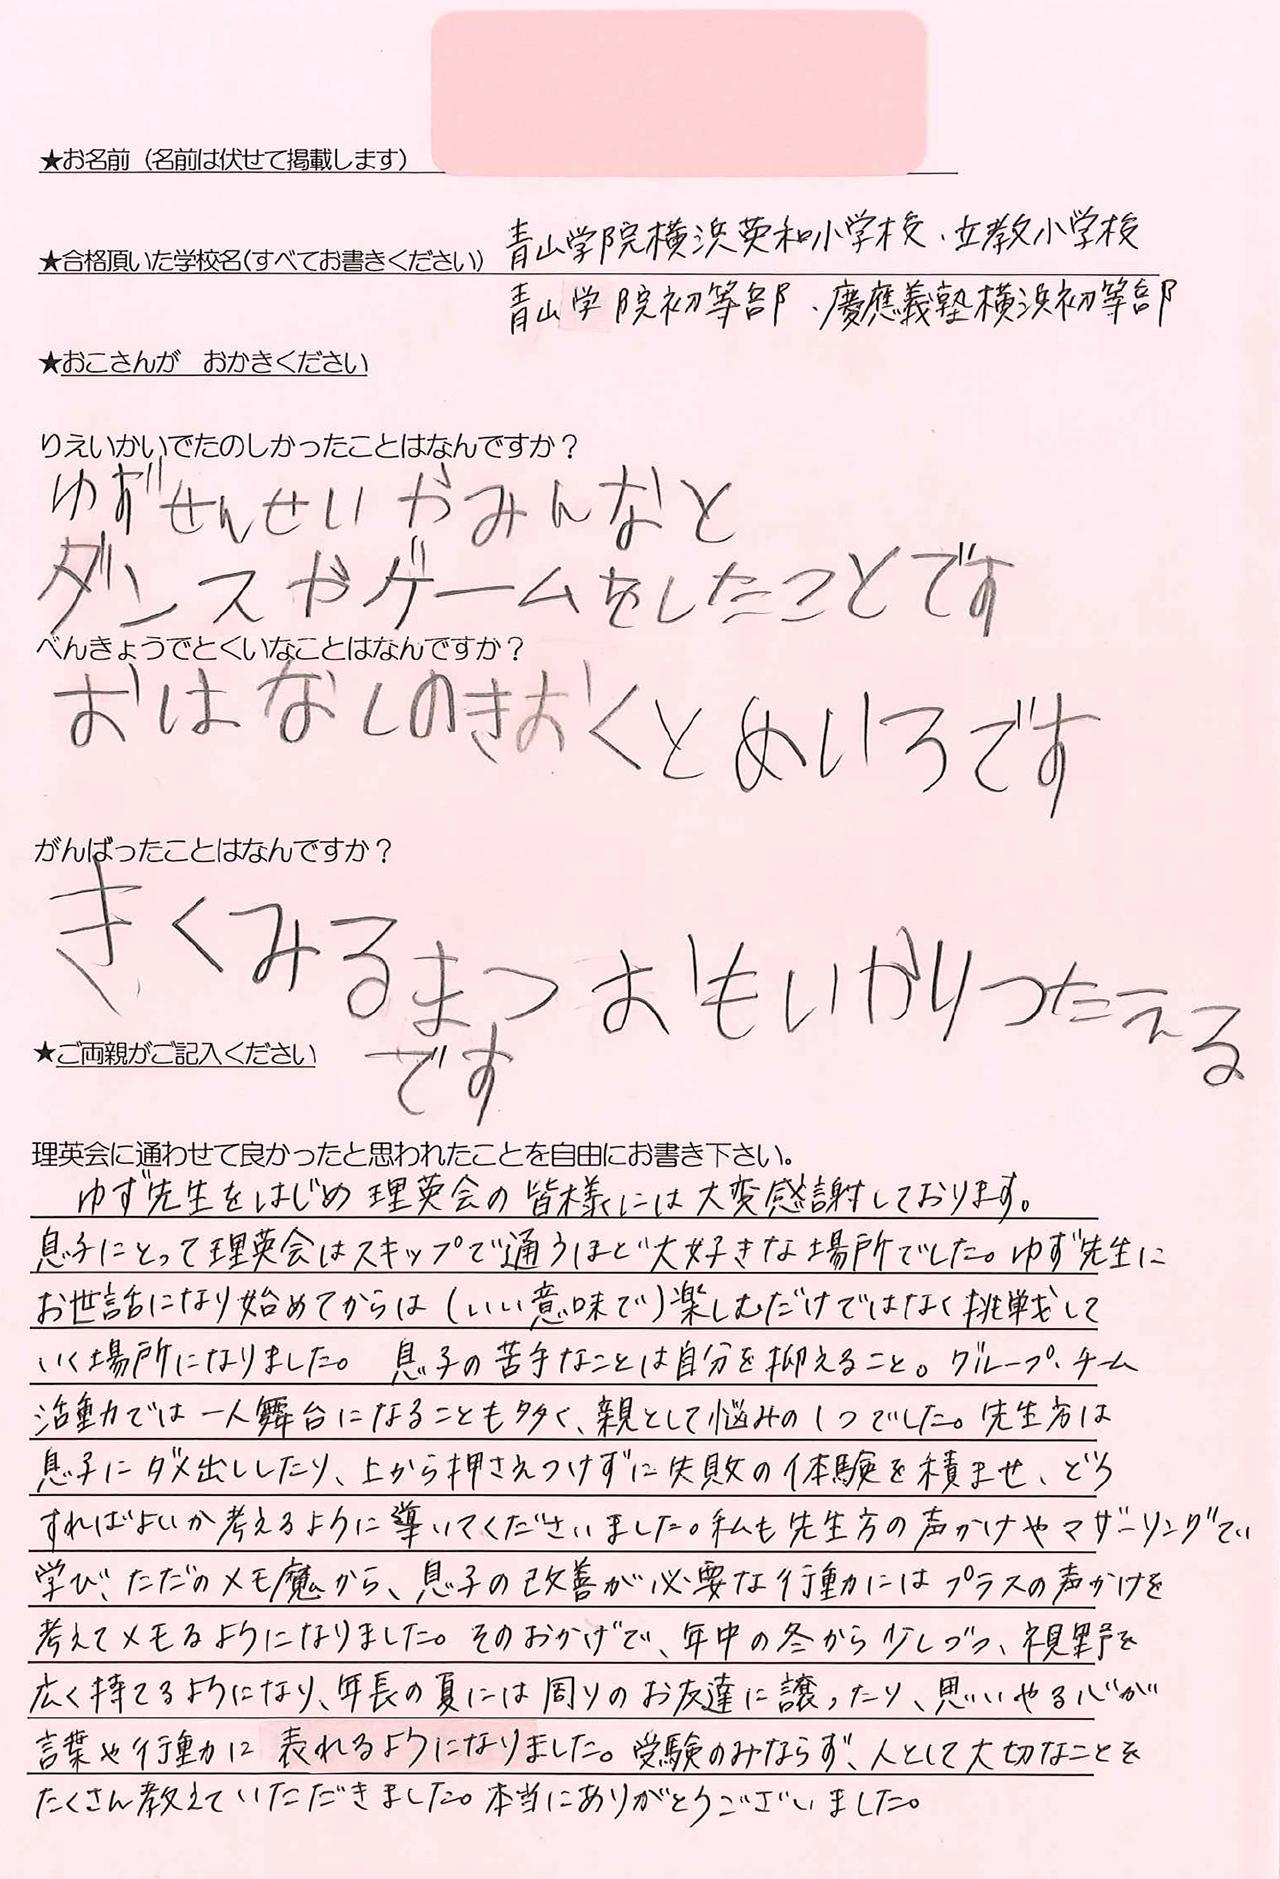 ★お名前（名前は伏せて掲載します）
★合格頂いた学校名(すべてお書きください) 青山学院横浜英和小学校、立教小学校
青山学院初等部、慶應義塾横浜初等部
★おこさんが　おかきください
りえいかいでたのしかったことはなんですか？
ゆずせんせいやみんなと
ダンスやゲームをしたことです
べんきょうでとくいなことはなんですか？
おはなしのきおくとめいろです
がんばったことはなんですか？
きくみるまつ おもいかりつたえる
です
★ご両親がご記入ください
理英会に通わせて良かったと思われたことを自由にお書き下さい。
ゆず先生をはじめ理英会の皆様には大変感謝しております。
息子にとって理英会はスキップで通うほど大好きな場所でした。ゆず先生に
お世話になり始めてからは（いい意味で）楽しむだけではなく挑戦して
いく場所になりました。息子の苦手なことは自分を抑えること。グループ・チーム
活動では一人舞台になることも多く、親として悩みの1つでした。先生方は
息子にダメ出ししたり、上から押さえつけずに失敗の体験を積ませ、どう
すればよいか考えるように導いてくださいました。私も先生方の声かけやマザーリングで
学び、ただのメモ魔から、息子の改善が必要な行動にはプラスの声かけを
考えてメモるようになりました。そのおかげで、年中の冬から少しづつ、視野を
広く持てるようになり、年長の夏には周りのお友達に譲ったり、思いやる心が
言葉や行動に表れるようになりました。受験のみならず、人として大切なことを
たくさん教えていただきました。本当にありがとうございました。